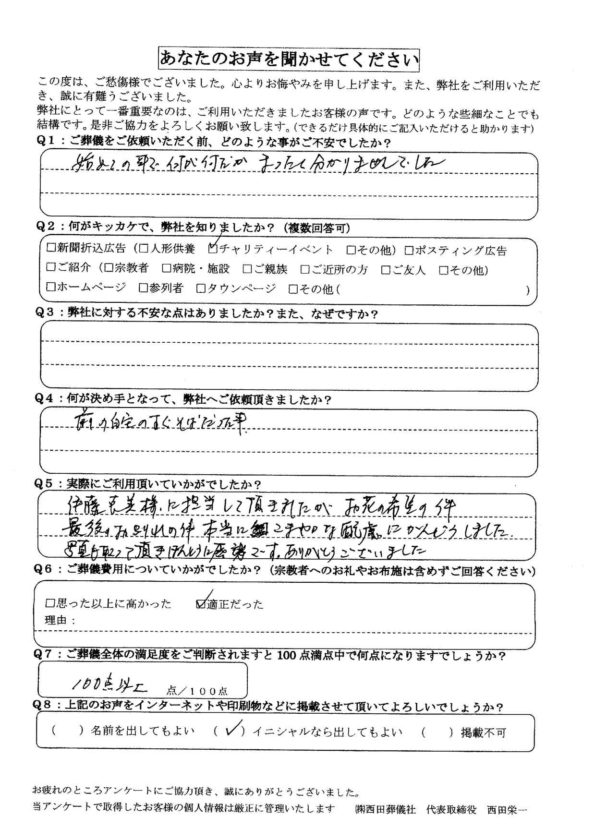 あなたのお声を聞かせてください
この度は、ご愁傷様でございました。心よりお悔やみを申し上げます。また、弊社をご利用いただ
き、誠に有難うございました。
弊社にとって一番重要なのは、ご利用いただきましたお客様の声です。どのような些細なことでも
結構です。是非ご協力をよろしくお願い致します。(できるだけ具体的にご記入いただけると助かります)
Q1：ご葬儀をご依頼いただく前、どのような事がご不安でしたか？
始めての事で何が何だか まったく分かりませんでした
Q2：何がキッカケで、弊社を知りましたか？（複数回答可）
□新聞折込広告（□人形供養 ☑チャリティーイベント □その他）□ポスティング広告
□ご紹介（□宗教者 □病院・施設 □ご親族 □ご近所の方 □ご友人 □その他）
□ホームページ □参列者 □タウンページ □その他( )
Q3：弊社に対する不安な点はありましたか？また、なぜですか？
Q4：何が決め手となって、弊社へご依頼頂きましたか？
前の自宅のすぐそばだった事
Q5：実際にご利用頂いていかがでしたか？
伊藤恵美様に担当して頂きましたが お花の希望の件
最後のお別れの件 本当に細こまやかな配慮にかんどうしました
写真も取って頂きほんとうに感謝です。ありがとうございました
Q6：ご葬儀費用についていかがでしたか？（宗教者へのお礼やお布施は含めずご回答ください）
□思った以上に高かった ☑適正だった
理由：
Q7：ご葬儀全体の満足度をご判断されますと100点満点中で何点になりますでしょうか？
100点以上 点／100点
Q8：上記のお声をインターネットや印刷物などに掲載させて頂いてよろしいでしょうか？
（ ）名前を出してもよい （✓）イニシャルなら出してもよい （ ）掲載不可
お疲れのところアンケートにご協力頂き、誠にありがとうございました。
当アンケートで取得したお客様の個人情報は厳正に管理いたします ㈱西田葬儀社 代表取締役 西田栄一